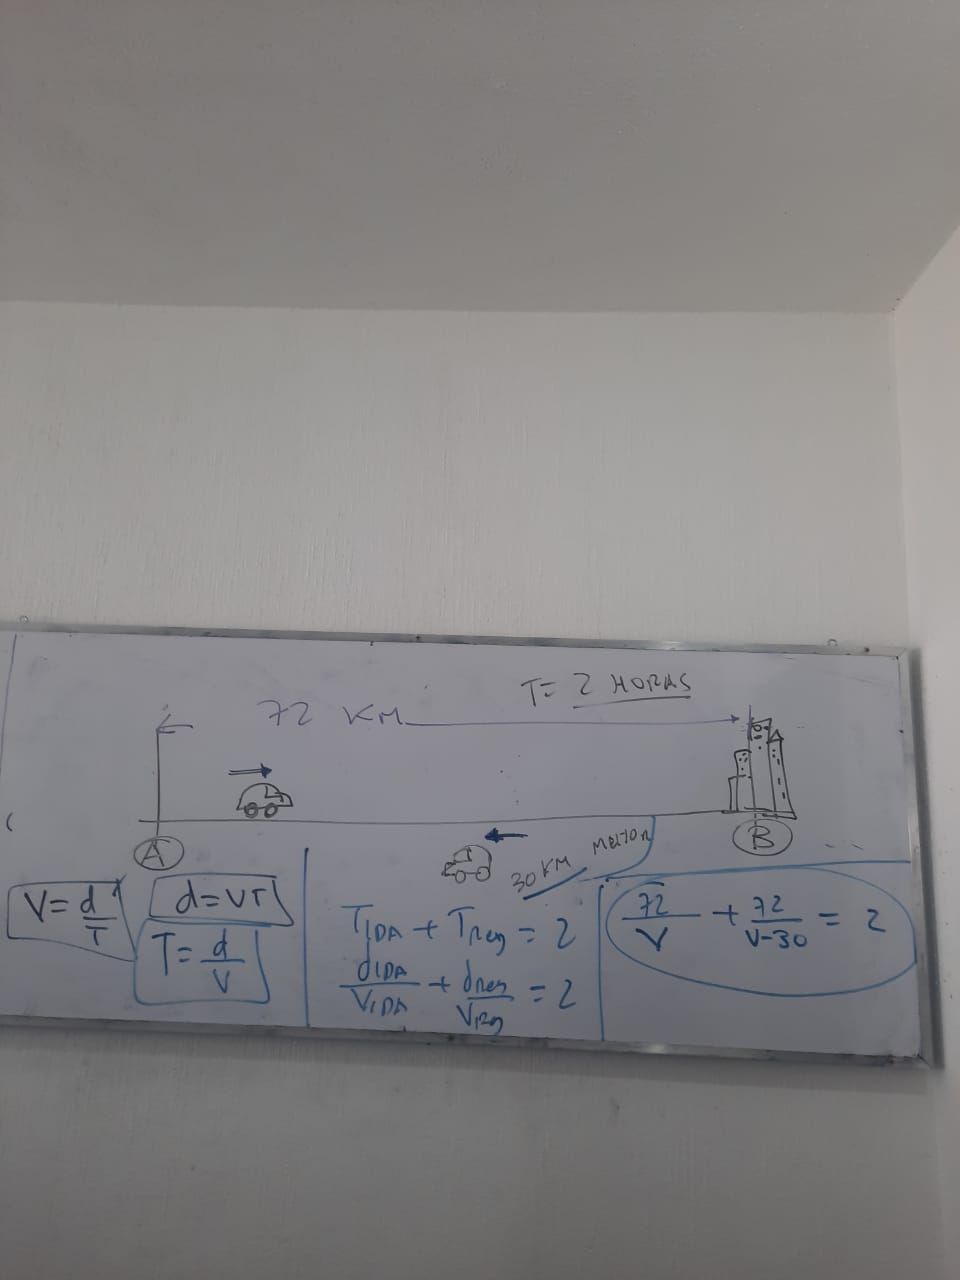 T= 2 HORAS
72 KM
A
B
30 KM
V= d/T
d=VT
T= d/V
TIDA + TReg = 2
dIDA/VIDA + dReg/VReg = 2
72/V + 72/V-30 = 2